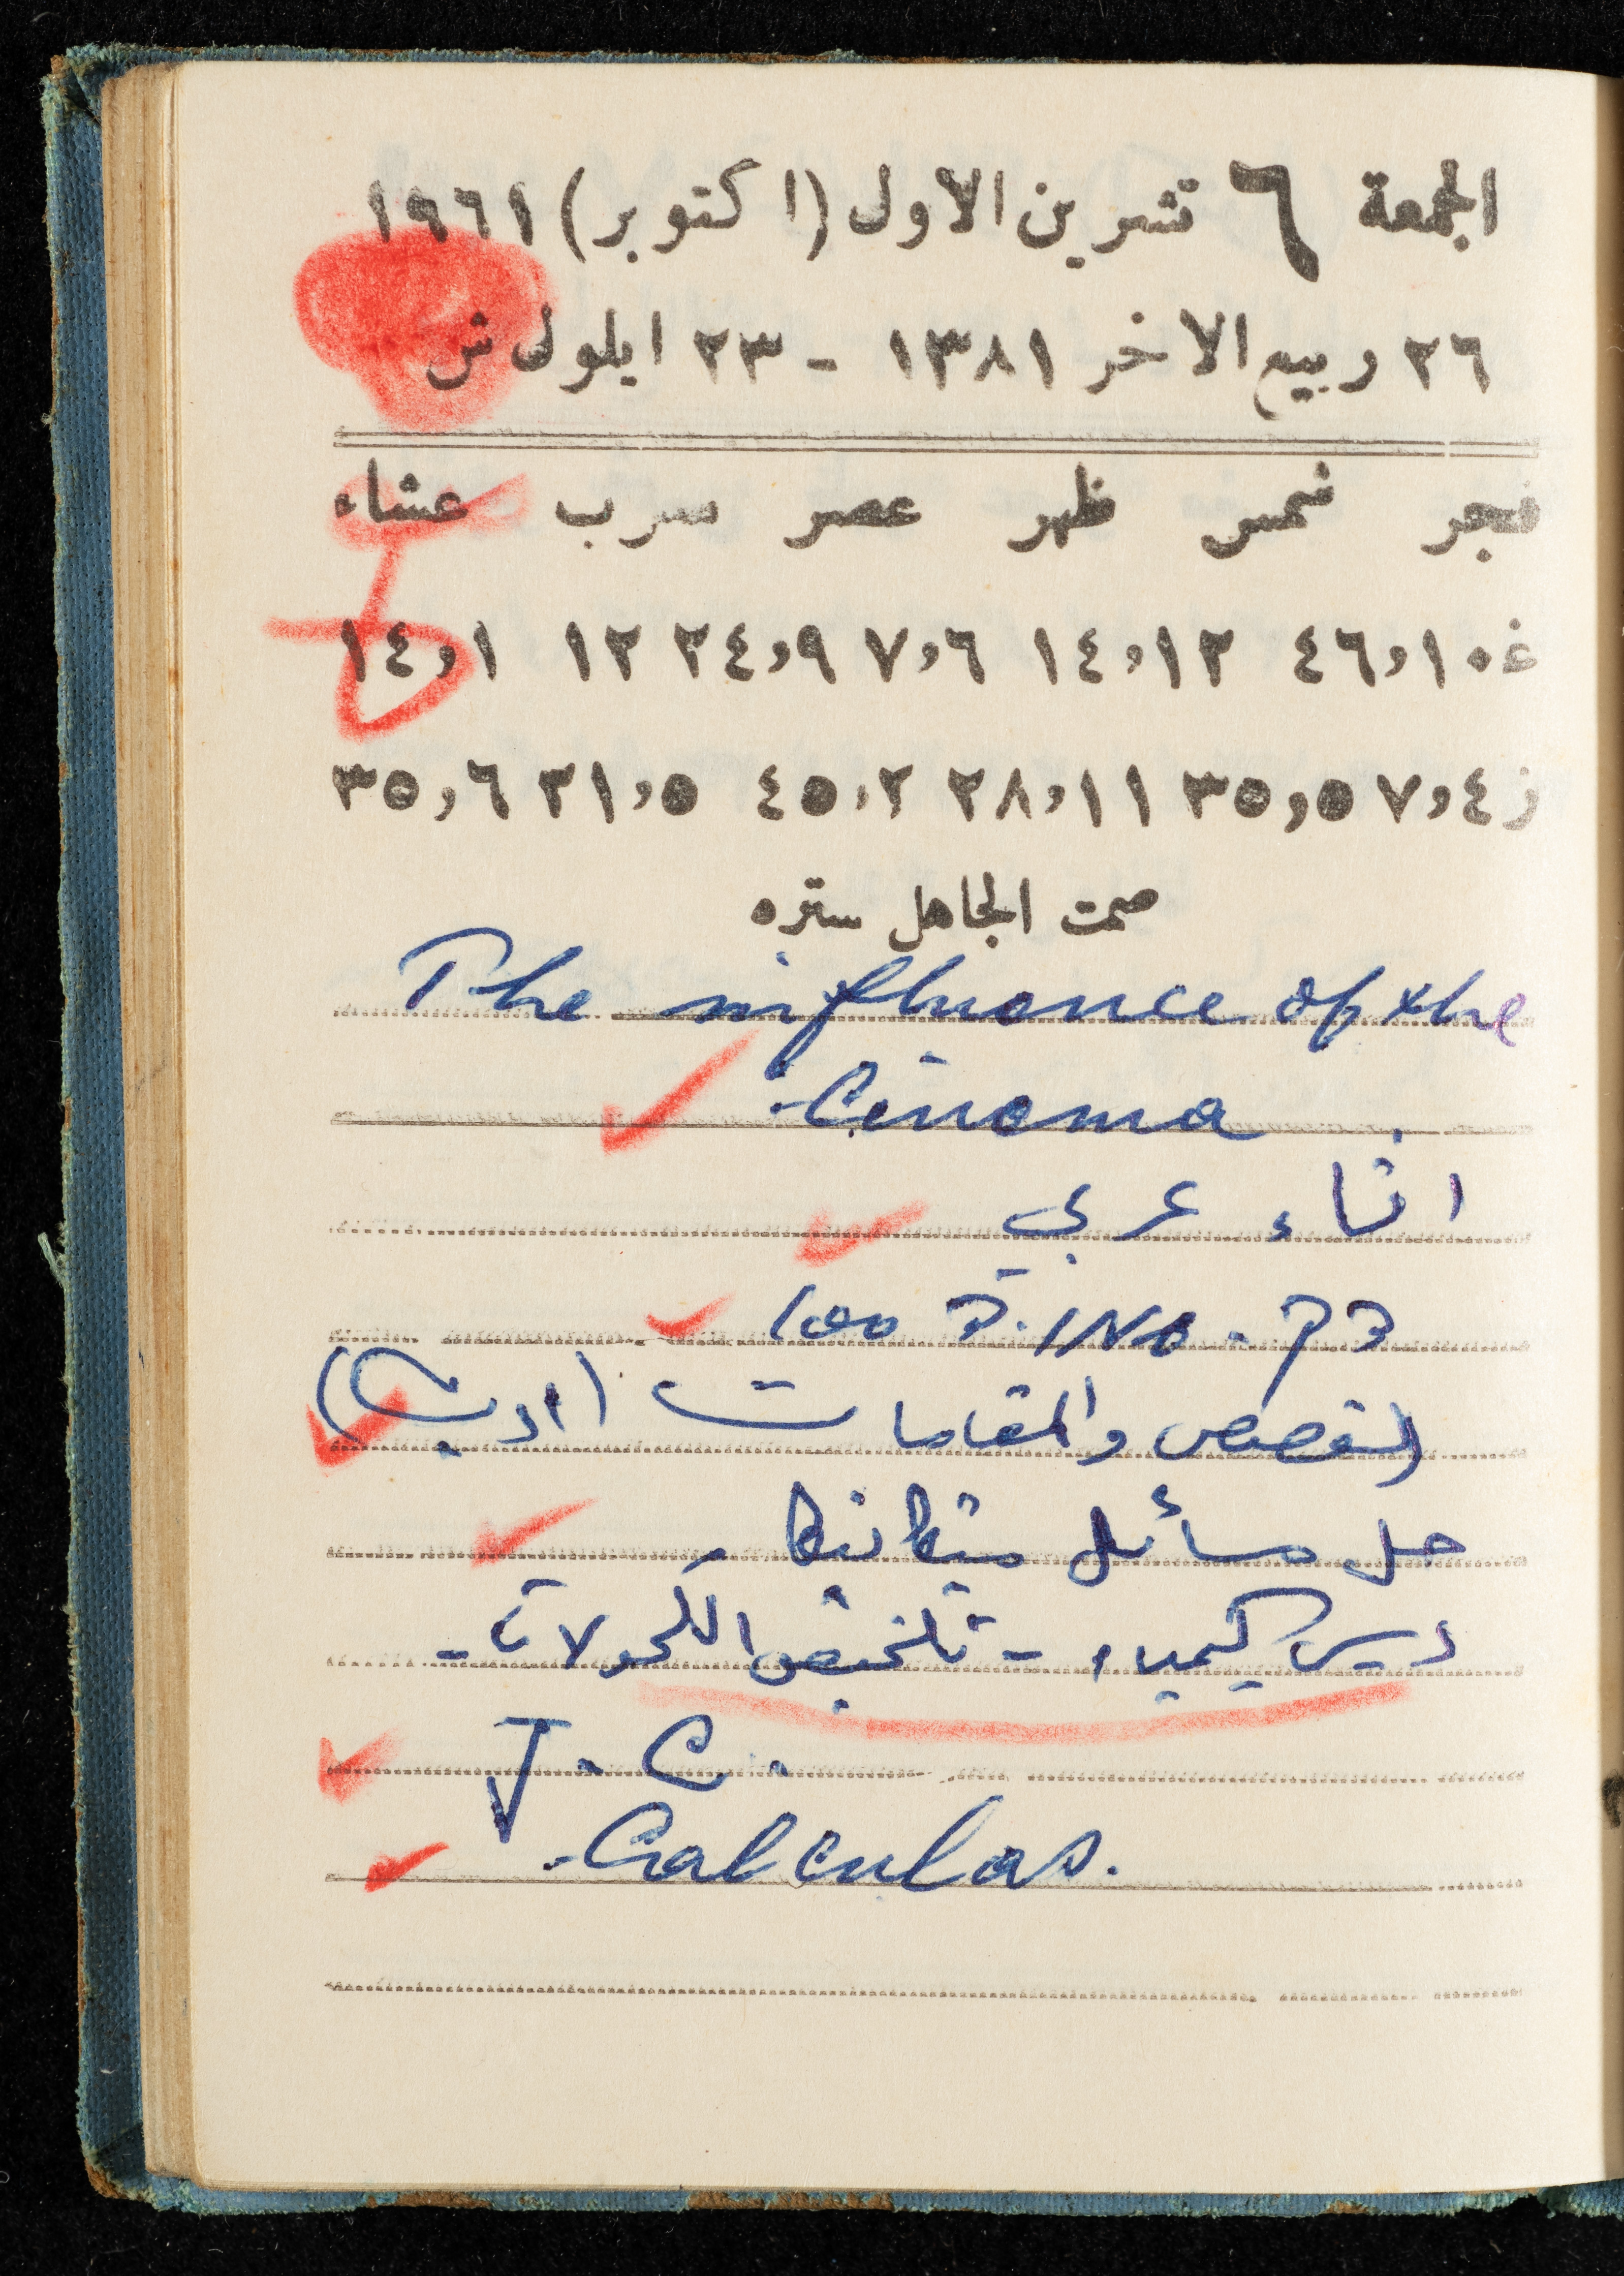 الجمعة ٦ تشرين الاول (اكتوبر) ١٩٦١
٢٦ ربيع الاخر ١٣٨١ - ٢٣ ايلول ش
فجر شمس ظهر عصر عشاء
غ ٤٦,١٠ ١٤,١٢ ٧,٦ ٢٤,٩ ١٢ ١٤,١
ز ٧,٤ ٣٥,٥ ٢٨,١١ ٤٥,٢ ٢١,٥ ٣٥,٦
صمت الجاهل ستره
The influence of the
Cinema.
انشاء عربي
100
القصص والمقامات (ادب)
حل مسائل ميكانيكا -
درس كيمياء - تلخيص الكحولات -
J. C.
Calculas.